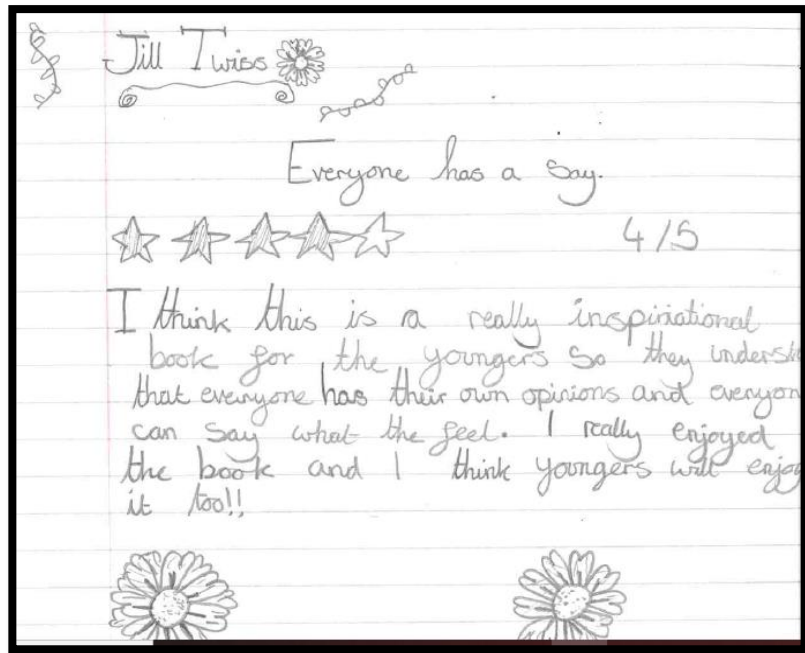 Jill Twiss
Everyone has a say.
4/5
I think this is a really inspiriational
book for the youngers so they underst
that everyone has their own opinions and everyon
can say what the feel. I really enjoyed
the book and I think youngers will enjoy
it too!!